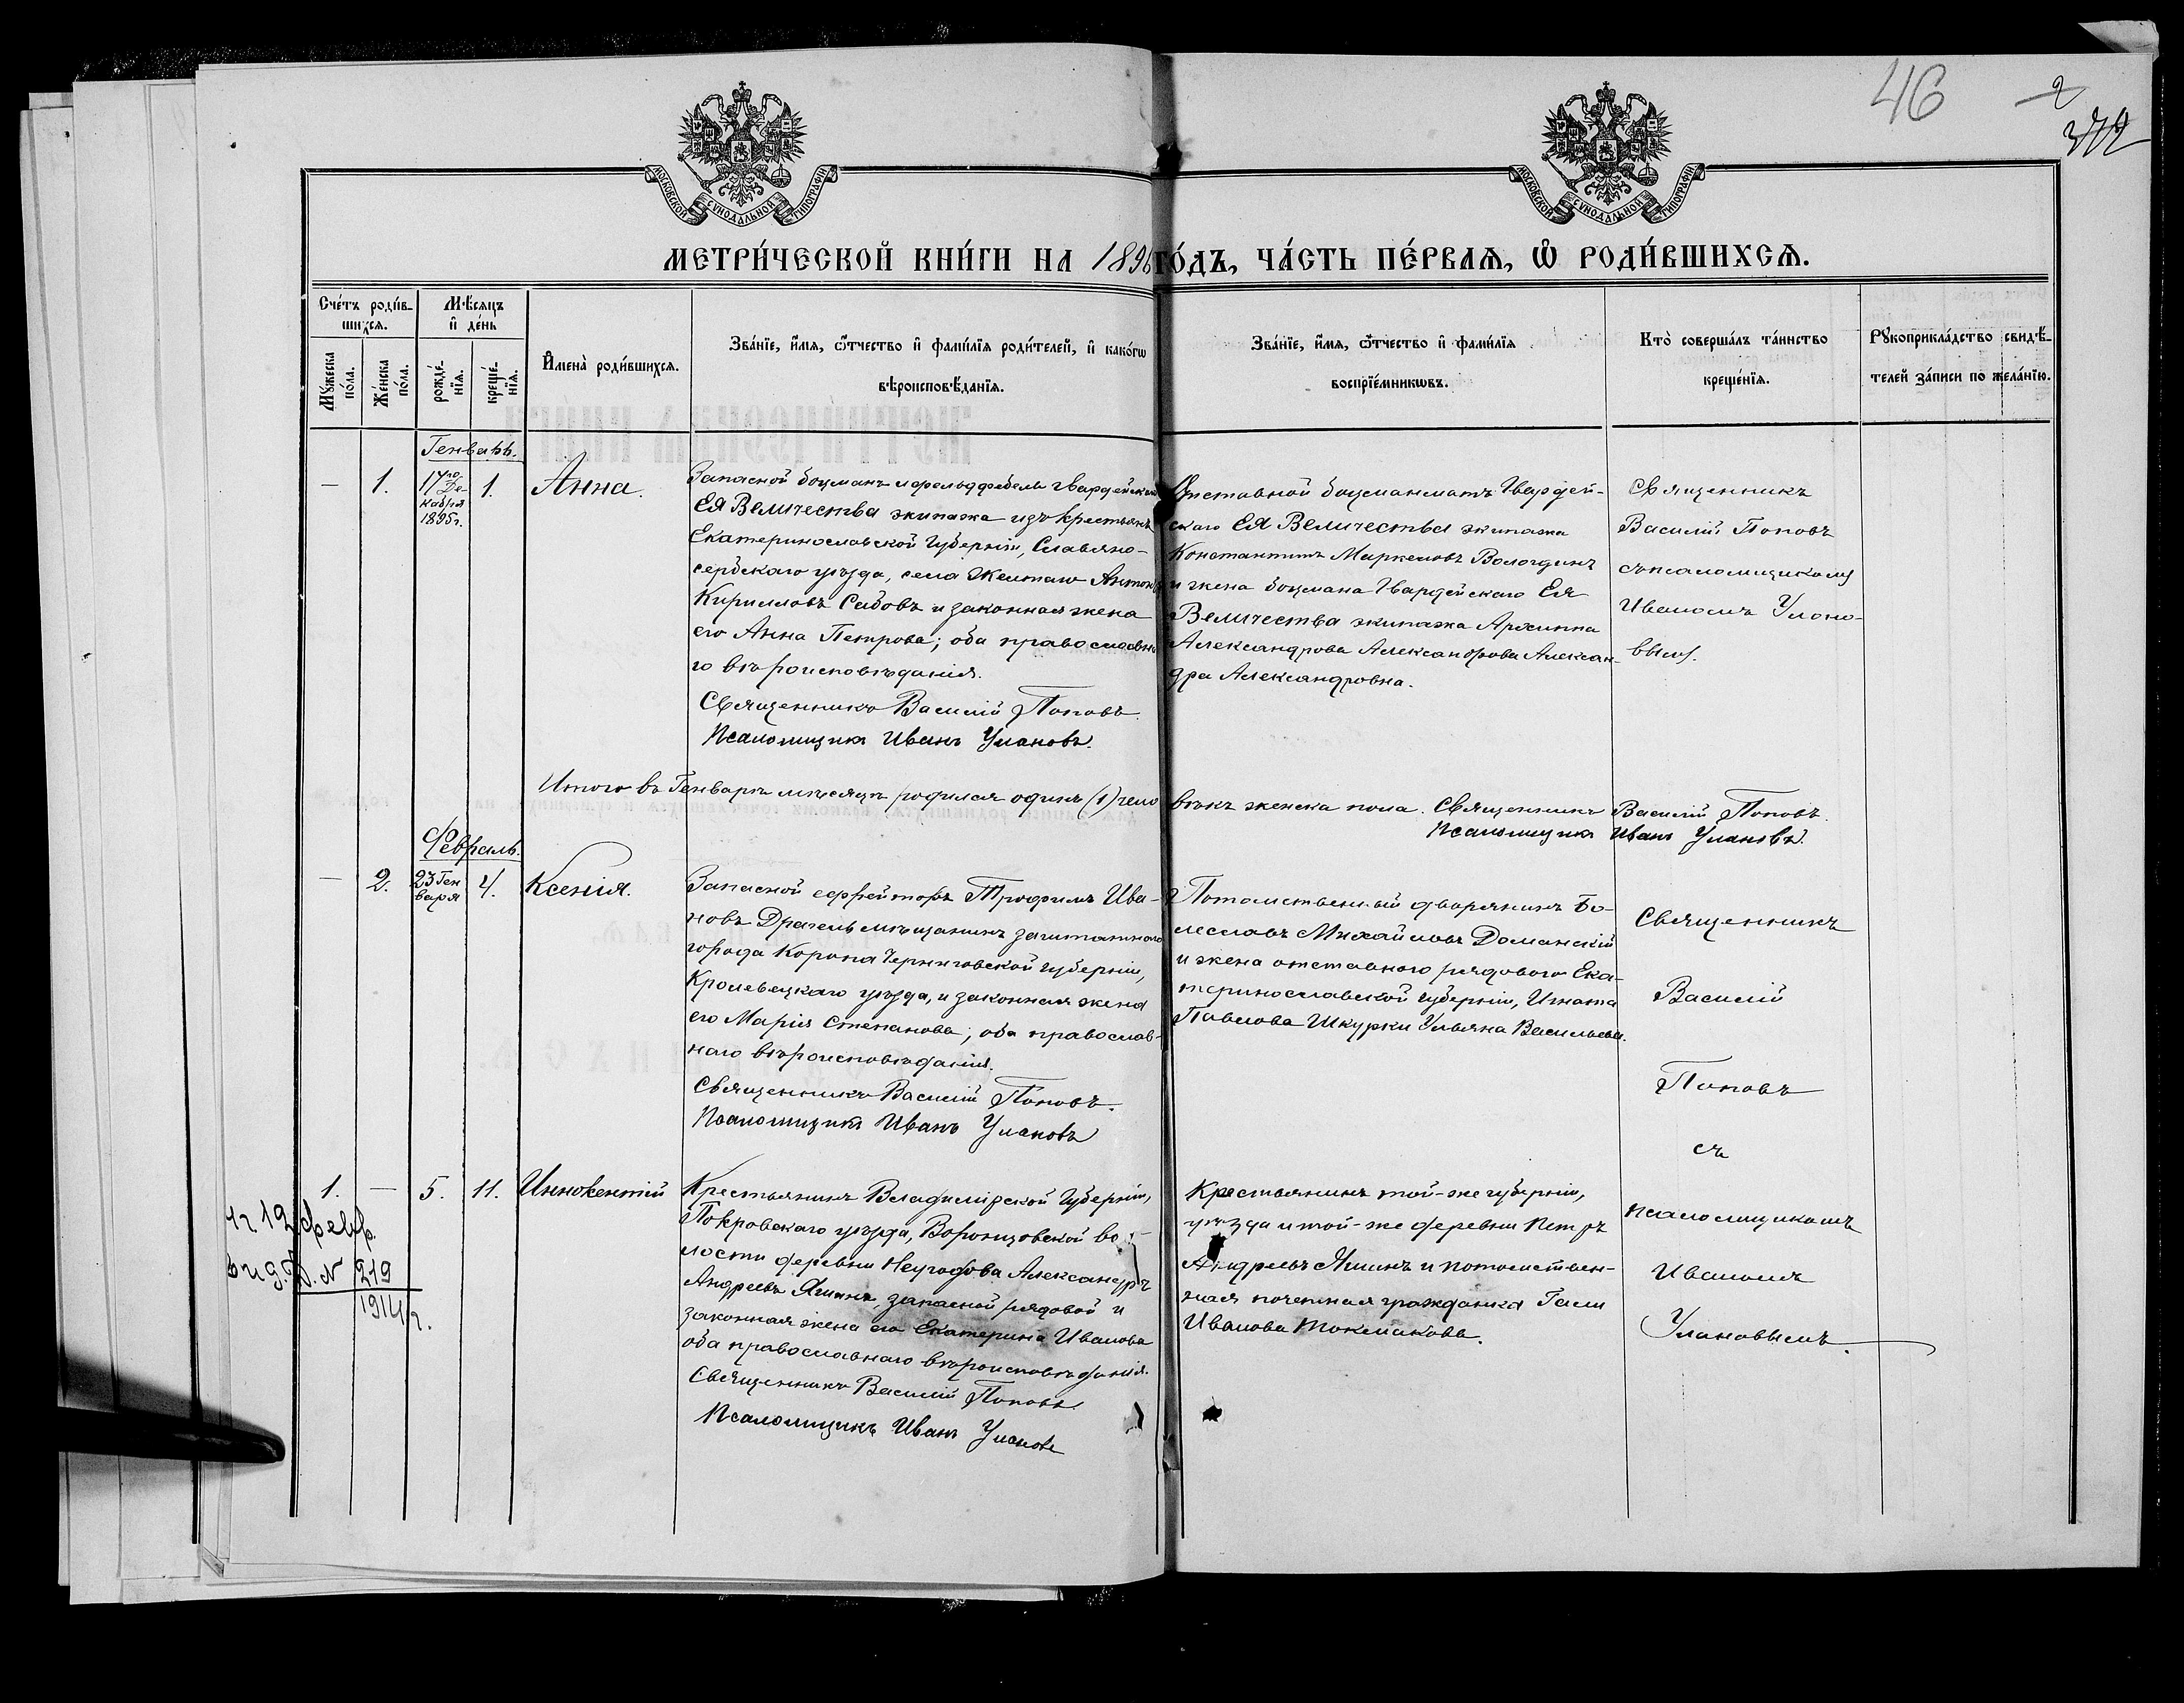 46
2
372
МОСКОВСКОЙ СУНОДАЛЬНОЙ ТИПОГРАФІИ
МОСКОВСКОЙ СУНОДАЛЬНОЙ ТИПОГРАФІИ
МЕТРИ́ЧЕСКОЙ КНИ́ГИ НА 1896 ГО́ДЪ, ЧА́СТЬ ПЕ́РВАѦ, Ѡ҆ РОДИ́ВШИХСѦ.
Сче́тъ роди́в-
шихсѧ.
Мꙋжеска по́ла.
Же́нска по́ла.
Мѣ́сѧцъ
и҆ де́нь
рожде́-
нїѧ.
креще́-
нїѧ.
И҆мена̀ роди́вшихсѧ.
Зва́нїе, и҆́мѧ, ѻ҆́тчество и҆ фами́лїѧ роди́телей, и҆ како́гѡ
вѣроисповѣ́данїѧ.
Зва́нїе, и҆́мѧ, ѻ҆́тчество и҆ фами́лїѧ
воспрїе́мникѡвъ.
Кто̀ соверша́лъ та́инство
креще́нїѧ.
Рꙋкоприкла́дство свидѣ́-
телей за́писи по жела́нїю.
Генварь.
— 1. 17го Де-
кабря
1895 г.
1. Анна.
Запасной боцманъ и фельдфебель Гвардейскаго
ЕЯ Величества экипажа изъ крестьянъ
Екатеринославской губерніи, Славяно-
сербскаго уѣзда, села Желтаго Антонъ
Кирилловъ Сабовъ и законная жена
его Анна Петрова; оба православна-
го вѣроисповѣданія.
Священникъ Василій Поповъ.
Псаломщикъ Иванъ Улановъ.
Отставной боцманматъ Гвардей-
скаго ЕЯ Величества экипажа
Константинъ Маркеловъ Вологдинъ
и жена боцмана Гвардейскаго Ея
Величества экипажа Архиппа
Александрова Александрова Алексан-
дра Александровна.
Священникъ
Василій Поповъ
съ псаломщикомъ
Иваномъ Улано-
вымъ.
Итого въ Генварѣ мѣсяцѣ родился одинъ (1) чело
вѣкъ женска пола. Священникъ Василій Поповъ.
Псаломщикъ Иванъ Улановъ.
Февраль.
— 2. 23 Ген
варя
4. Ксенія.
Запасной ефрейторъ Трофимъ Ива-
новъ Драгель мѣщанинъ заштатнаго
города Коропа Черниговской губерніи,
Кролевецкаго уѣзда, и законная жена
его Марія Степанова; оба православ-
наго вѣроисповѣданія.
Священникъ Василій Поповъ.
Псаломщикъ Иванъ Улановъ
Потомственный дворянинъ Бо-
леславъ Михайловъ Доманскій
и жена отставного рядового Ека-
теринославской губерніи, Игната
Павлова Шкурки Ульяна Васильева.
Священникъ
Василій
Поповъ
съ
псаломщикомъ
Иваномъ
Улановымъ.
1. — 5. 11. Иннокентій
12 февр.
выд. Д. N 219
1914 г.
Крестьянинъ Владимірской губерніи,
Покровскаго уѣзда, Воронцовской во-
лости деревни Неугодова Александръ
Андреевъ Яшинъ, запасной рядовой и
законная жена его Екатерина Иванова
оба православнаго вѣроисповѣданія.
Священникъ Василій Поповъ
Псаломщикъ Иванъ Улановъ
Крестьянинъ той-же губерніи,
уѣзда и той-же деревни Петръ
Андреевъ Яшинъ и потомствен-
ная почетная гражданка
Иванова Токмакова.